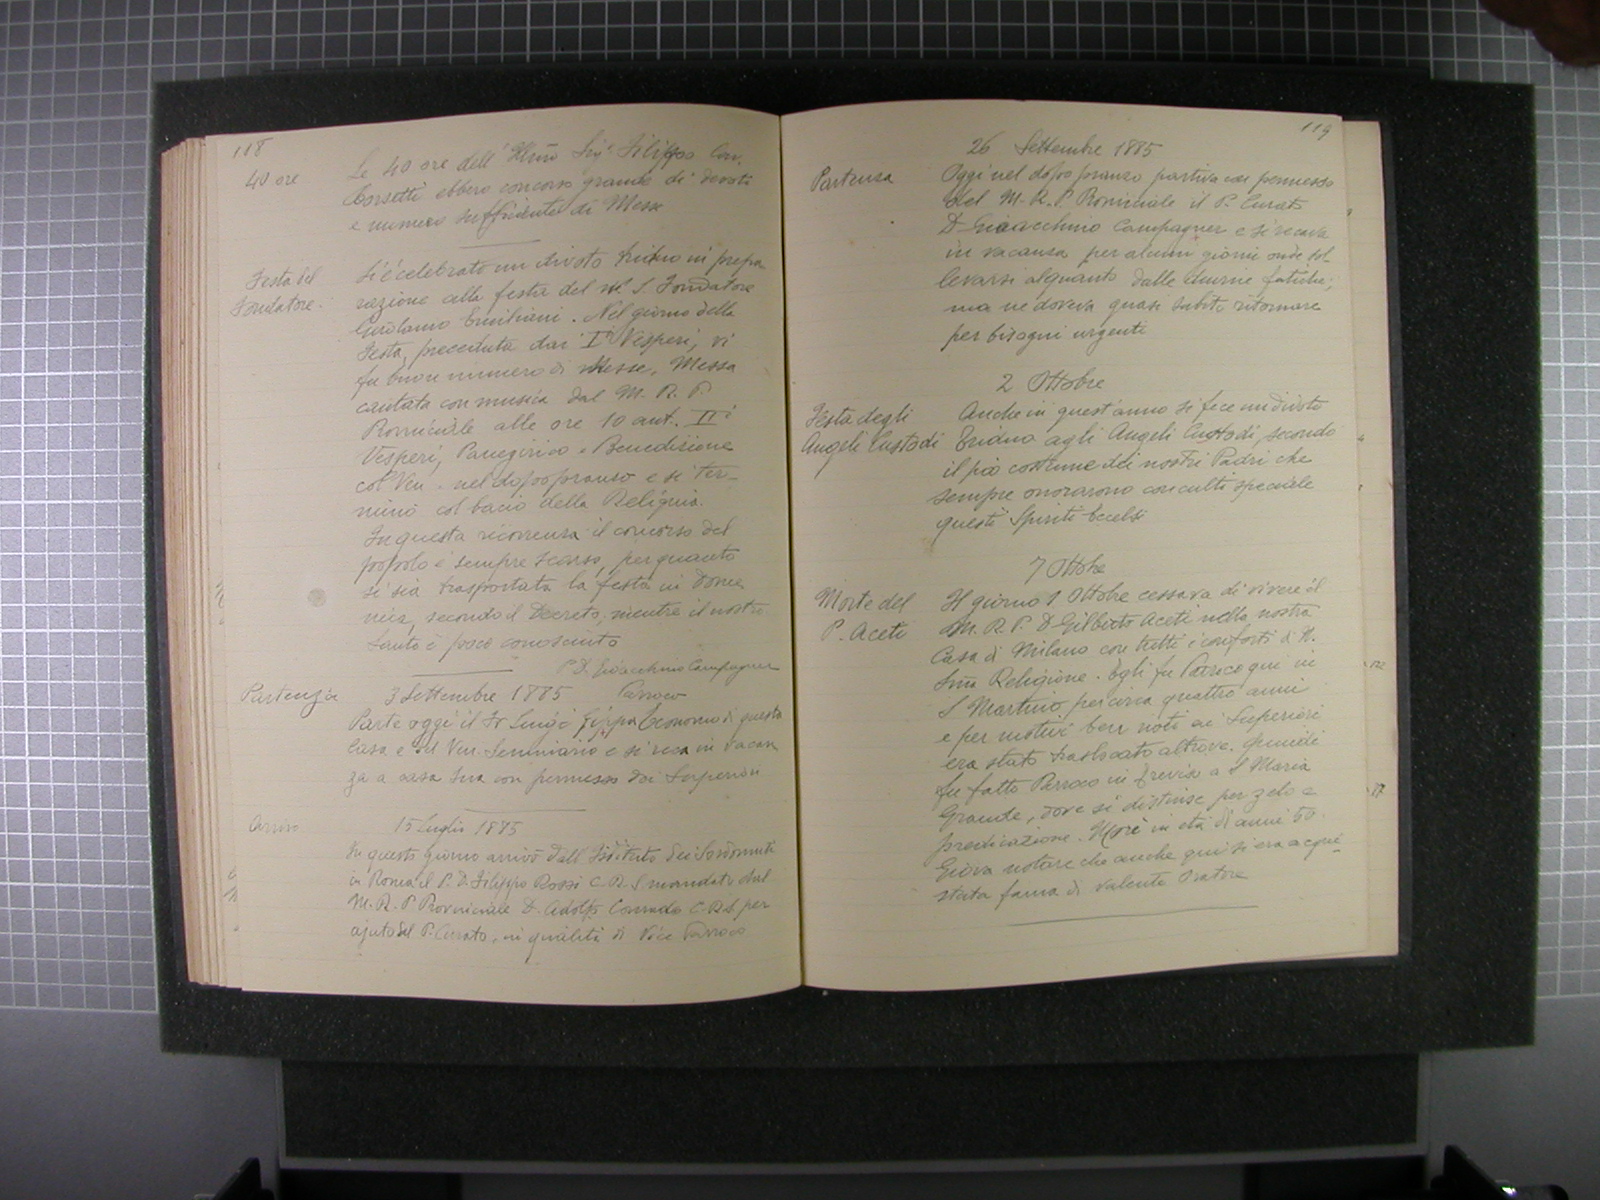 118
40 ore
Le 40 ore dell' Illmo Sig.r Filippo Con.
Corsetti ebbero concorso grande di devoti
e numero sufficiente di Messe
Festa del
Fondatore.
Si è celebrato un divoto triduo in prepa
razione alla festa del n.o S. Fondatore
Girolamo Emiliani. Nel giorno della
Festa, preceduta dai Ii Vesperi, vi
fu buon numero di Messe, Messa
cantata con musica dal M. R. P.
Provinciale alle ore 10 ant. IIi
Vesperi, Panegirico e Benedizione
col Ven. nel dopopranzo e si ter-
minò col bacio della Reliquia.
In questa ricorrenza il concorso del
popolo è sempre scarso, per quanto
si sia trasportata la festa in Dome
nica, secondo il Decreto, mentre il nostro
Santo è poco conosciuto
P. D. Gioacchino Campagner
Parroco
Partenza
3 Settembre 1885
Parte oggi il Fr Luigi Economo di questa
Casa e del Ven. Seminario e si reca in vacan
za a casa sua con permesso dei Superiori
Arrivo
15 Luglio 1885
In questo giorno arrivò dall' Istituto dei Sordomuti
in Roma il P. D. Filippo Rossi C. R. S. mandato dal
M. R. P. Provinciale D. Adolfo Conrado C. R. S. per
ajuto del P. Curato, in qualità di Vice Parroco
119
26 Settembre 1885
Partenza
Oggi nel dopo pranzo partiva con permesso
del M. R. P. Provinciale il P. Curato
D. Gioacchino Campagner e si recava
in vacanza per alcuni giorni onde sol
levarsi alquanto dalle diurne fatiche;
ma ne doveva quasi subito ritornare
per bisogni urgenti
2 Ottobre
Festa degli
Angeli Custodi
Anche in quest'anno si fece un divoto
Triduo agli Angeli Custodi, secondo
il pio costume dei nostri Padri che
sempre onorarono con culto speciale
questi Spiriti Eccelsi
7 Ottobre
Morte del
P. Aceti
Il giorno 1 Ottobre cessava di vivere il
M. R. P. D. Gilberto Aceti nella nostra
Casa di Milano con tutti i conforti di N.
Sma Religione. Egli fu Parroco qui in
S. Martino per circa quattro anni
e per motivi ben noti ai Superiori
era stato traslocato altrove. Quindi
fu fatto Parroco in Treviso a S. Maria
Grande, dove si distinse per zelo e
predicazione. Morì in età di anni 50.
Giova notare che anche qui si era acqui-
stata fama di valente Oratore